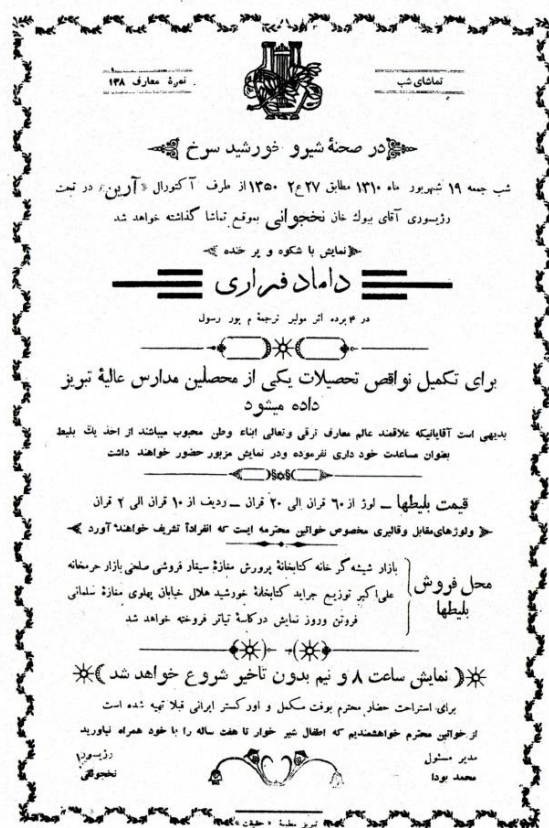 تماشای شب
نمرهٔ معارف ۹۳۸
در صحنهٔ شیرو خورشید سرخ
شب جمعه ۱۹ شهریور ماه ۱۳۱۰ مطابق ۲۷ ع ۲ ۱۳۵۰ از طرف آکتورال «آرین» در تحت
رژیسوری آقای بیوك خان نخجوانی بموقع تماشا گذاشته خواهد شد
نمایش با شکوه و پر خنده
داماد فراری
در ۴ پرده اثر مولیر ترجمهٔ م پور رسول
برای تکمیل نواقص تحصیلات یکی از محصلین مدارس عالیهٔ تبریز
داده میشود
بدیهی است آقایانیکه علاقمند عالم معارف ترقی وتعالی ابناء وطن محبوب میباشند از اخذ یك بلیط
بعنوان مساعدت خود داری نفرموده ودر نمایش مزبور حضور خواهند داشت
قیمت بلیطها ـ لوژ از ۶۰ قران الی ۲۰ قران ـ ردیف از ۱۰ قران الی ۲ قران
ولوژهای مقابل وقالبری مخصوص خواتین محترمه ایست که انفراداً تشریف خواهند آورد
محل فروش بلیطها
بازار شیشه گر خانه کتابخانهٔ پرورش مغازهٔ سیغار فروشی صلحی بازار حرمخانه
علی اکبر توزیع جراید کتابخانهٔ خورشید هلال خیابان پهلوی مغازهٔ سلمانی
فروتن وروز نمایش درکاسهٔ تیاتر فروخته خواهد شد
نمایش ساعت ۸ و نیم بدون تاخیر شروع خواهد شد
برای استراحت حضار محترم بوفت مکمل و اورکستر ایرانی قبلا تهیه شده است
از خواتین محترم خواهشمندیم که اطفال شیر خوار تا هفت ساله را با خود همراه نیاورید
مدیر مسئول
محمد بودا
رژیسور
نخجوانی
تبریز مطبعهٔ «حقیقت»